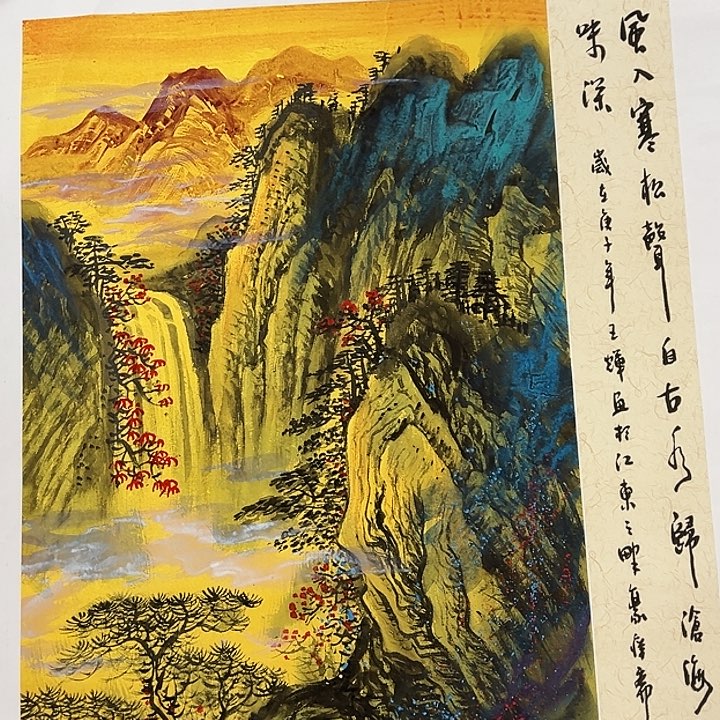 風入寒松聲自古水歸滄海
味深 歲在庚子年王輝画於江東之畔